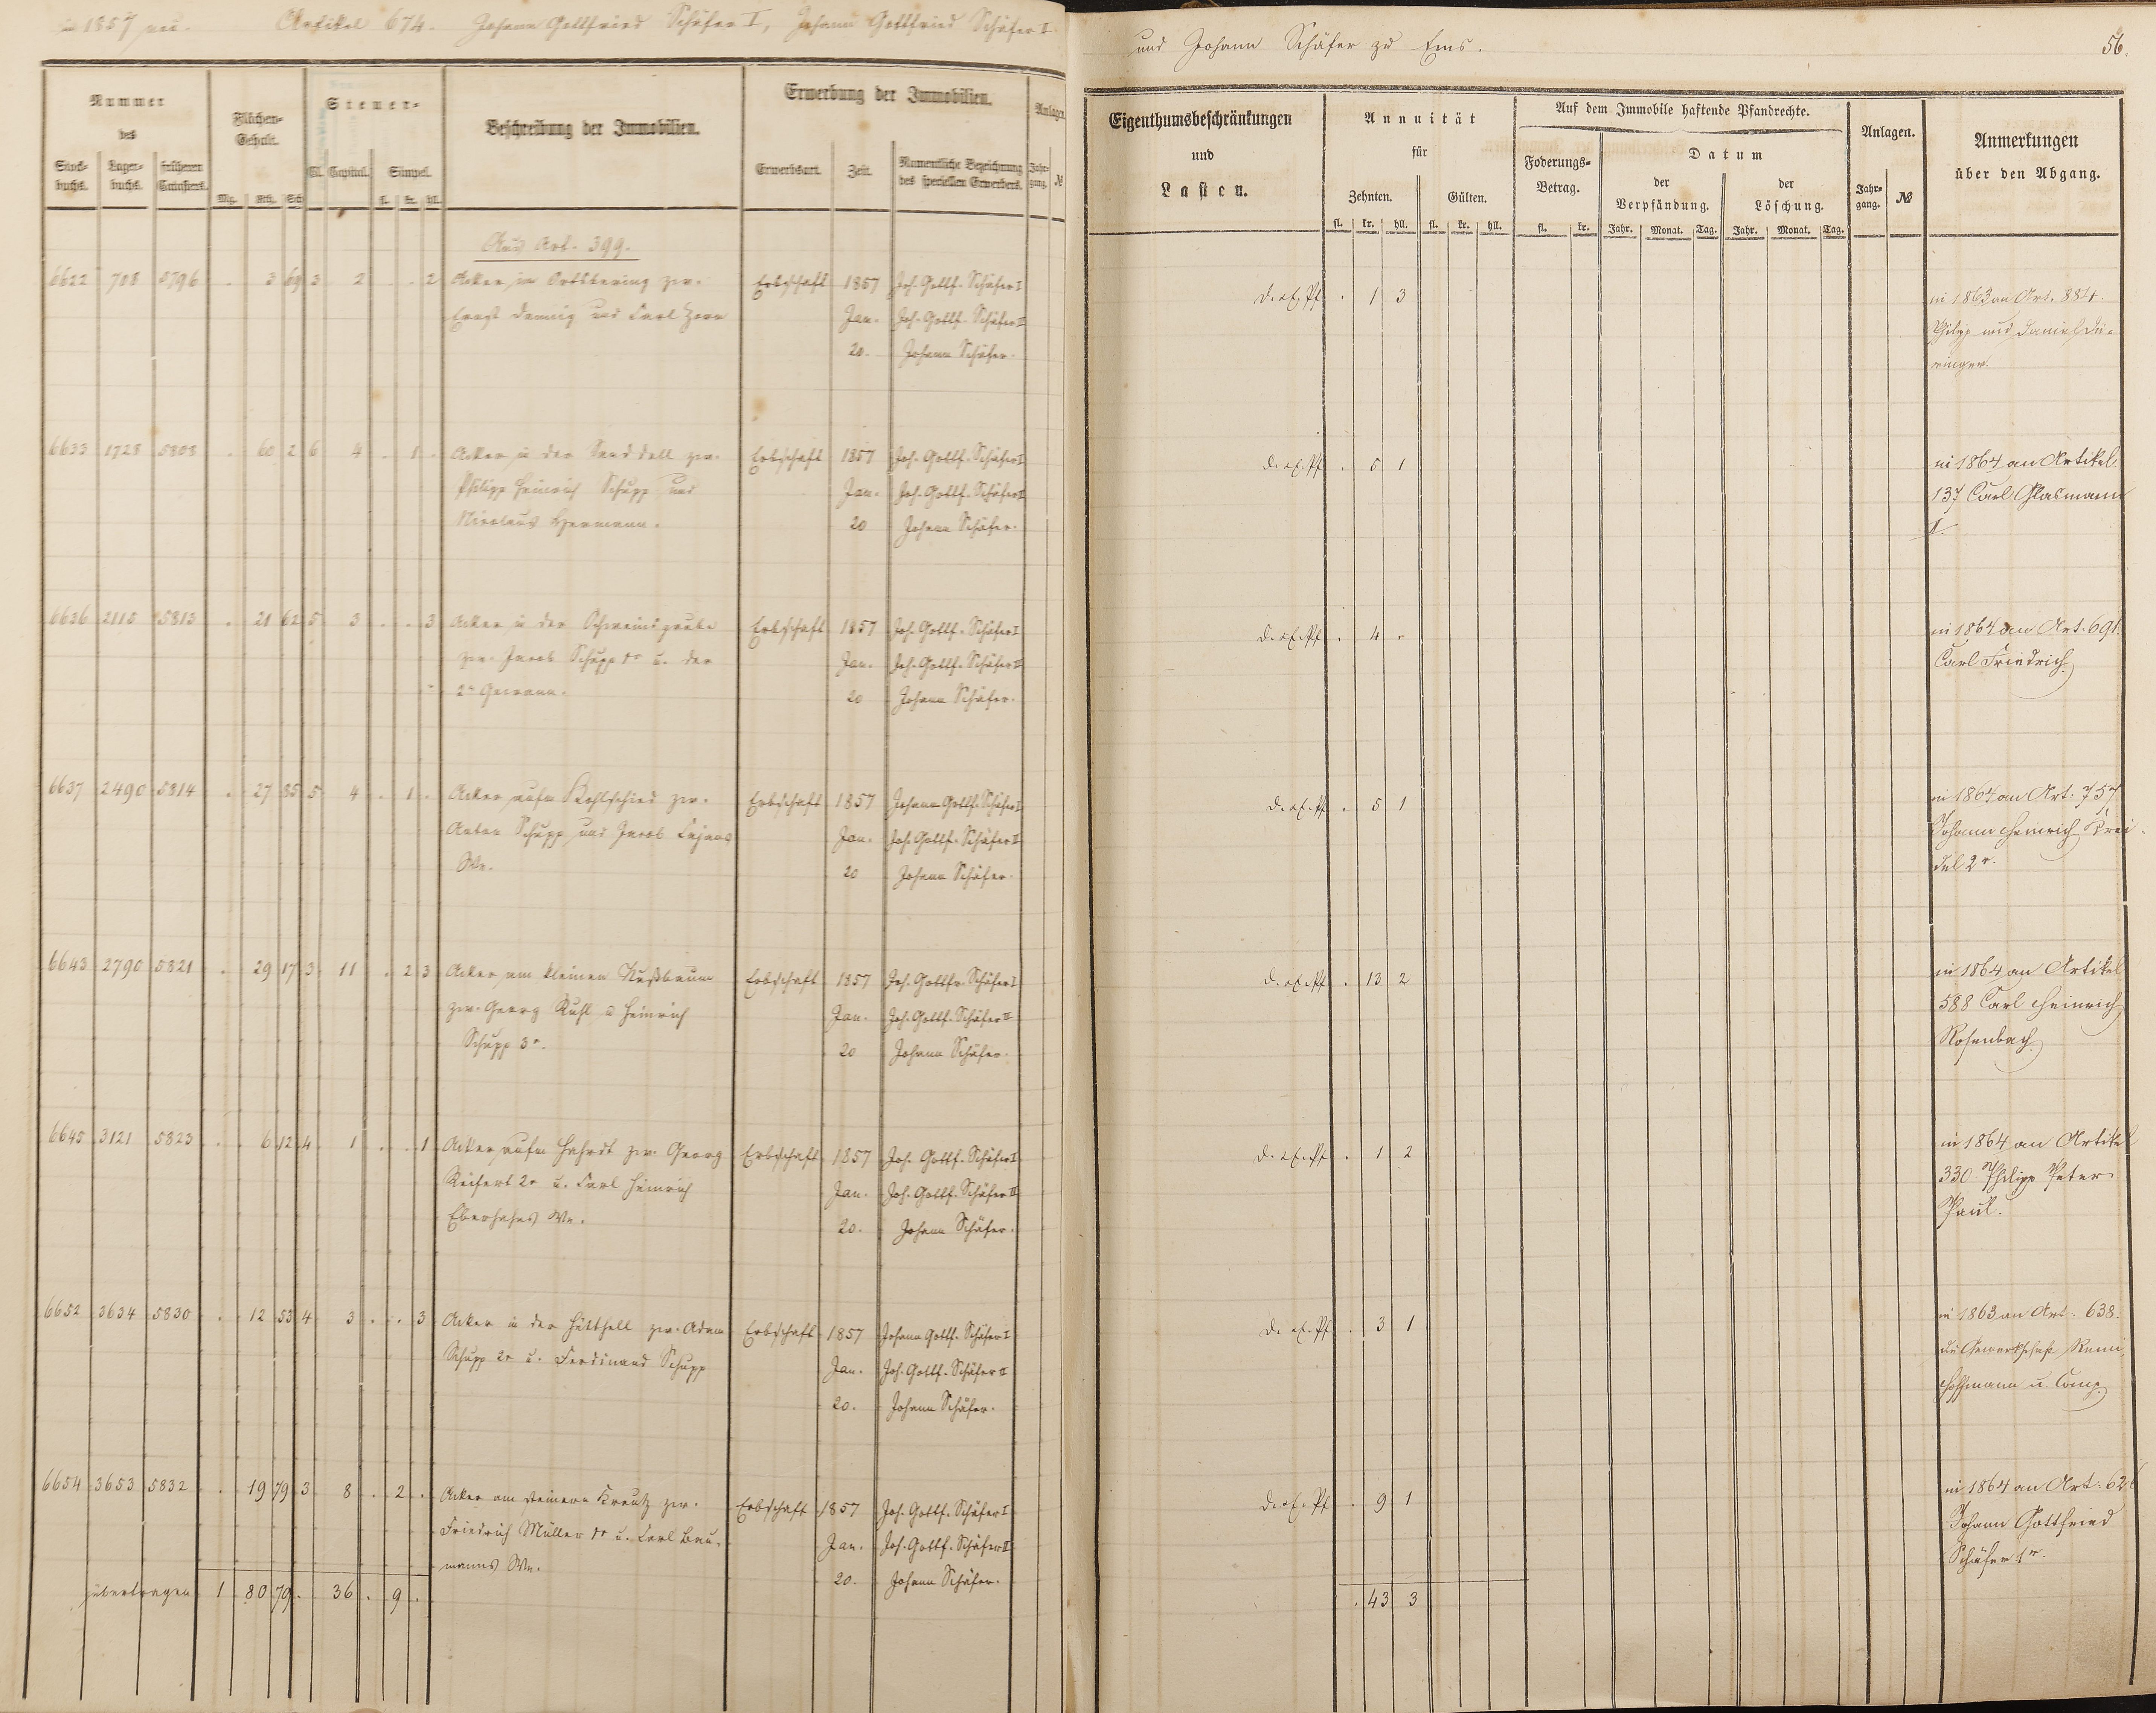 in 1857 neu. Artikel 674. Johann Gottfried Schäfer I, Johann Gottfried Schäfer II
und Johann Schäfer zu Ems. 56.
Nummer des
Stockbuchs. Lagerbuchs. früheren Catasters.
Flächen-Gehalt.
Mg. Rth. Sch
Steuer-
Cl. Capital. Simpel.
fl. kr. hll.
Beschreibung der Immobilien.
Erwerbung der Immobilien.
Erwerbsart. Zeit. Namentliche Bezeichnung des speciellen Erwerbers.
Anlagen.
Jahrgang. №
Eigenthumsbeschränkungen
und
Lasten.
Annuität
für
Zehnten. Gülten.
fl. kr. hll. fl. kr. hll.
Auf dem Immobile haftende Pfandrechte.
Foderungs-Betrag.
fl. kr.
Datum
der Verpfändung. der Löschung.
Jahr. Monat. Tag. Jahr. Monat. Tag.
Anlagen.
Jahrgang. №
Anmerkungen
über den Abgang.
Aus Art. 399.
6622 708 5796 . 3 69 3 2 . . 2 Acker im Ortsbering zw. Erbschaft 1857 Joh. Gottf. Schäfer I
und Carl Jan. Joh. Gottf. Schäfer II
20. Johann Schäfer.
. 1 3 in 1863 an Art. 884.
Philipp und Daniel Dü-
ringer.
6633 1728 5808 . 60 2 6 4 . 1 . Acker in der Sanddell zw. Erbschaft 1857 Joh. Gottf. Schäfer I
Philipp Heinrich Schupp und Jan. Joh. Gottf. Schäfer II
Nicolaus Hermann. 20 Johann Schäfer.
. 5 1 in 1864 an Artikel
137 Carl Glasmann
I.
6636 2115 5813 . 21 62 5 3 . . 3 Acker in der Schweinsgrube Erbschaft 1857 Joh. Gottf. Schäfer I
zw. Jacob Schupp 1r u. der Jan. Joh. Gottf. Schäfer II
2n Gewann. 20 Johann Schäfer.
. 4 . in 1864 an Art. 691.
Carl Friedrich
6637 2490 5814 . 27 85 5 4 . 1 . Acker aufm Kohlschied zw. Erbschaft 1857 Johann Gottf. Schäfer I
Anton Schupp und Jacob Jan. Joh. Gottf. Schäfer II
We. 20 Johann Schäfer.
. 5 1 in 1864 an Art. 757
Johann Heinrich Krei-
del 2r.
6643 2790 5821 . 29 17 3 11 . 2 3 Acker am kleinen Nußbaum Erbschaft 1857 Joh. Gottfr. Schäfer I
zw. Georg Kuhl u Heinrich Jan. Joh. Gottf. Schäfer II
Schupp 3r. 20 Johann Schäfer.
. 13 2 in 1864 an Artikel
588 Carl Heinrich
Rosenbach
6645 3121 5823 . 6 12 4 1 . . 1 Acker aufm Hahrdt zw. Georg Erbschaft 1857 Joh. Gottf. Schäfer I
Reifert 2r u. Carl Heinrich Jan. Joh. Gottf. Schäfer II
Eberhahns We. 20. Johann Schäfer.
. 1 2 in 1864 an Artikel
330 Philipp Peter
Paul.
6652 3634 5830 . 12 53 4 3 . . 3 Acker in der Hütthell zw. Adam Erbschaft 1857 Johann Gottf. Schäfer I
Schupp 2r u. Ferdinand Schupp Jan. Joh. Gottf. Schäfer II
20. Johann Schäfer.
. 3 1 in 1863 an Art. 638.
die Gewerkschaft Remi,
Hoffmann u. Comp.
6654 3653 5832 . 19 79 3 8 . 2 . Acker am steinern Kreutz zw. Erbschaft 1857 Joh. Gottf. Schäfer I
Friedrich Müller 1r u. Carl Bau- Jan. Joh. Gottf. Schäfer II
manns We. 20. Johann Schäfer.
. 9 1 in 1864 an Art. 626
Johann Gottfried
Schäfer 1r.
zu übertragen 1 80 79 . 36 . 9 . . 43 3